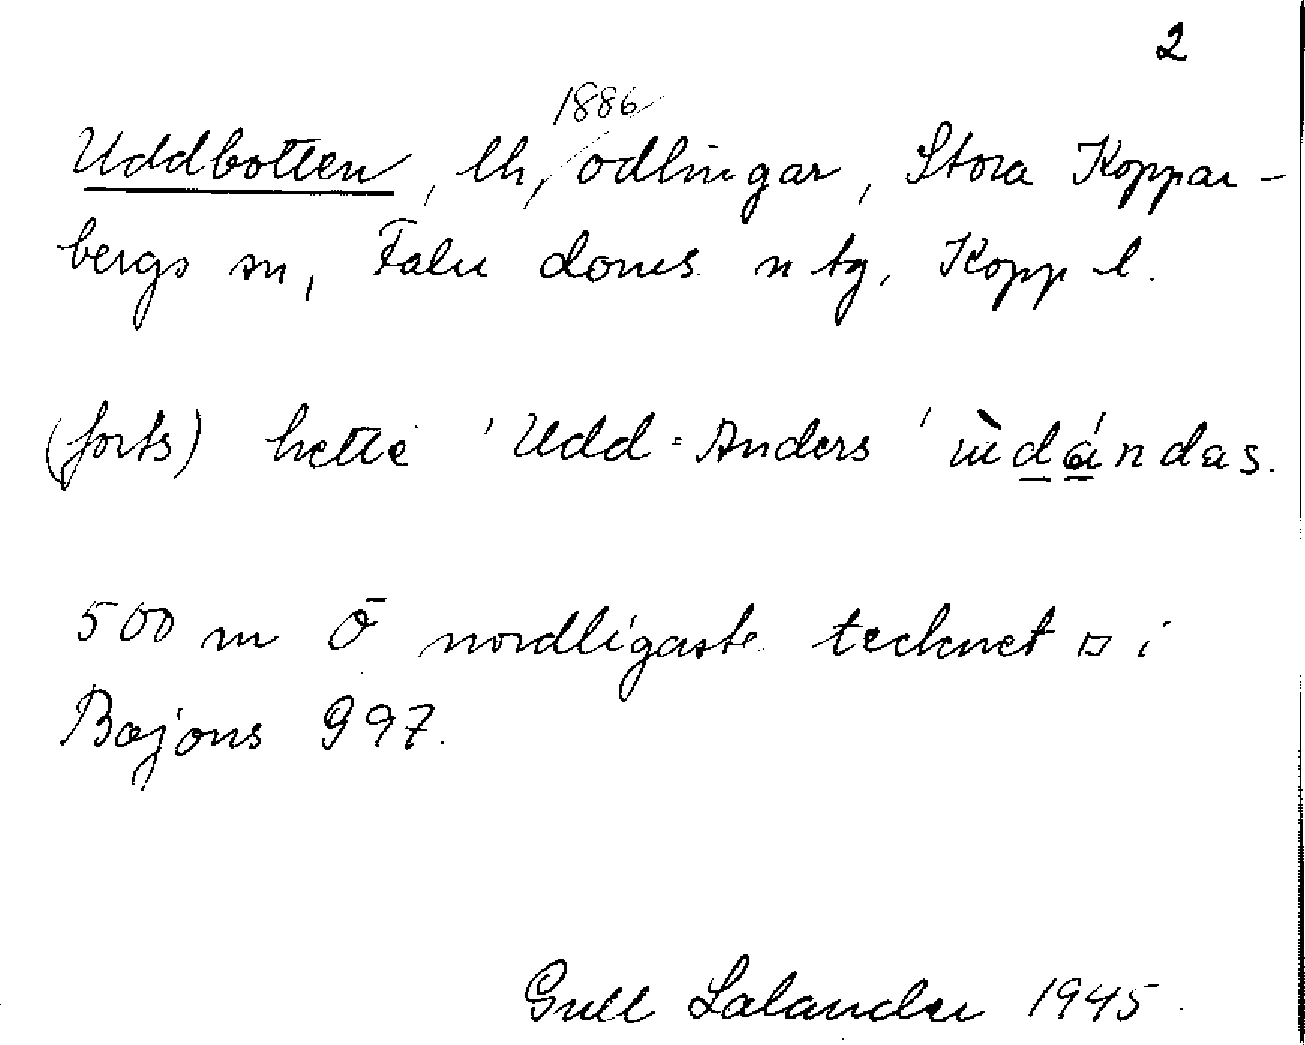 2
1886
Uddbotten, lh, odlingar, Stora Koppar-
bergs sn, Falu doms. n tg, Kopp l.
(forts) hette 'Udd-Anders' ùdándas.
500 m Ö nordligaste tecknet ¤ i
Bojons 997.
Gull Lalander 1945.